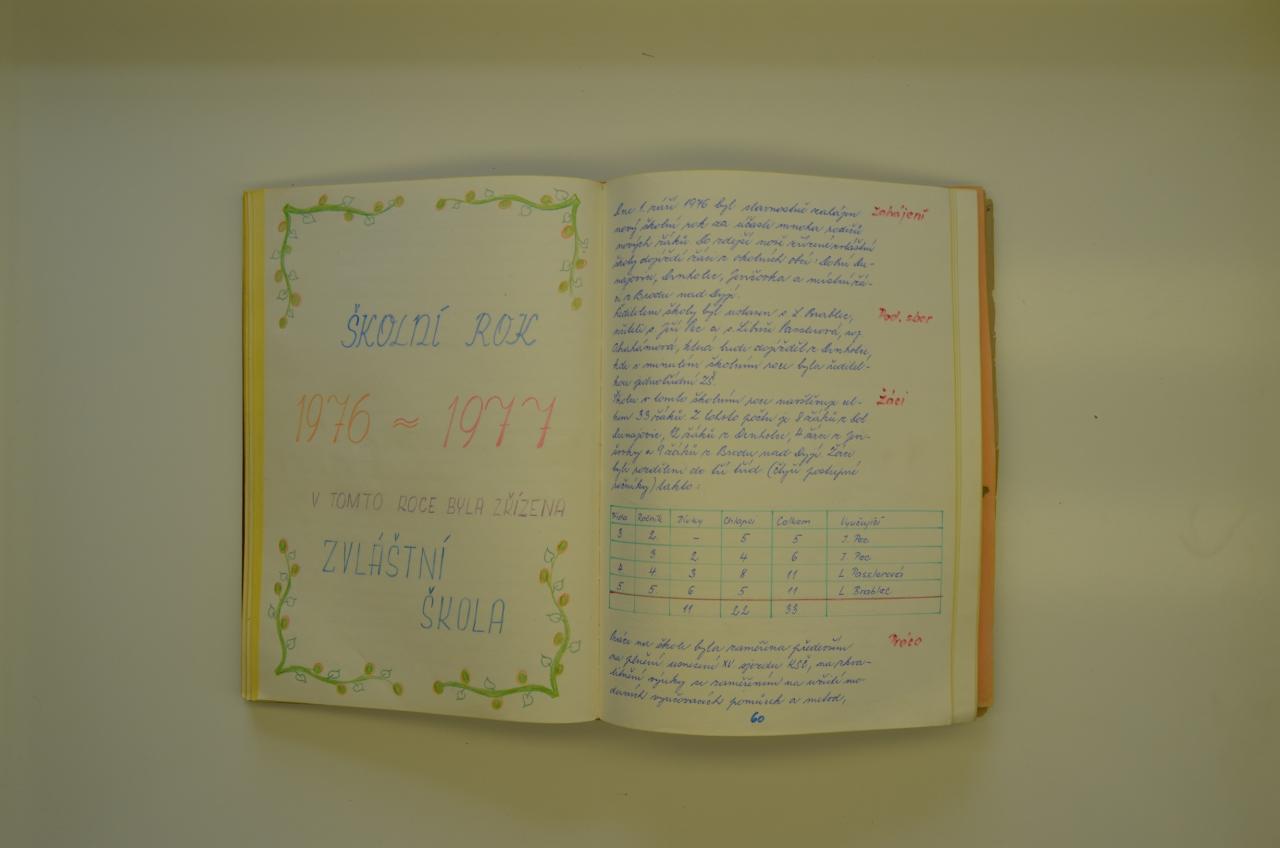 ŠKOLNÍ ROK
1976 ≈ 1977
V TOMTO ROCE BYLA ZŘÍZENA
ZVLÁŠTNÍ
ŠKOLA
Dne 1. září 1976 byl slavnostně zahájen
Zahájení
nový školní rok za účasti mnoha rodičů
nových žáků. Do zdejší nově zřízené zvláštní
školy dojíždí žáci z okolních obcí: Dolní Du-
najovice, Drnholec, Jevišovka a místní žá-
ci z Brodu nad Dyjí.
Ředitelem školy byl ustaven s. L. Brablec,
Ped. sbor
učitelé s. Jiří Pec a s. Libuše Passlerová, roz.
která bude dojíždět z Drnholce,
kde v minulém školním roce byla ředitel-
kou jednotřídní ZŠ.
Školu v tomto školním roce navštěvuje cel-
Žáci
kem 33 žáků. Z tohoto počtu je 8 žáků z Dol.
Dunajovic, 12 žáků z Drnholce, 4 žáci z Jevi-
šovky a 9 žáků z Brodu nad Dyjí. Žáci
byli rozděleni do tří tříd (čtyři postupné
ročníky) takto:
Třída Ročník Dívky Chlapci Celkem Vyučující
3 2. – 5 5 J. Pec
3 2 4 6 J. Pec
4 4 3 8 11 L. Passlerová
5. 5. 6 5 11 L. Brablec
11 22 33
Práce na škole byla zaměřena především
Práce
na plnění usnesení XV. sjezdu KSČ, na zkva-
litnění výuky se zaměřením na užití mo-
derních vyučovacích pomůcek a metod,
60